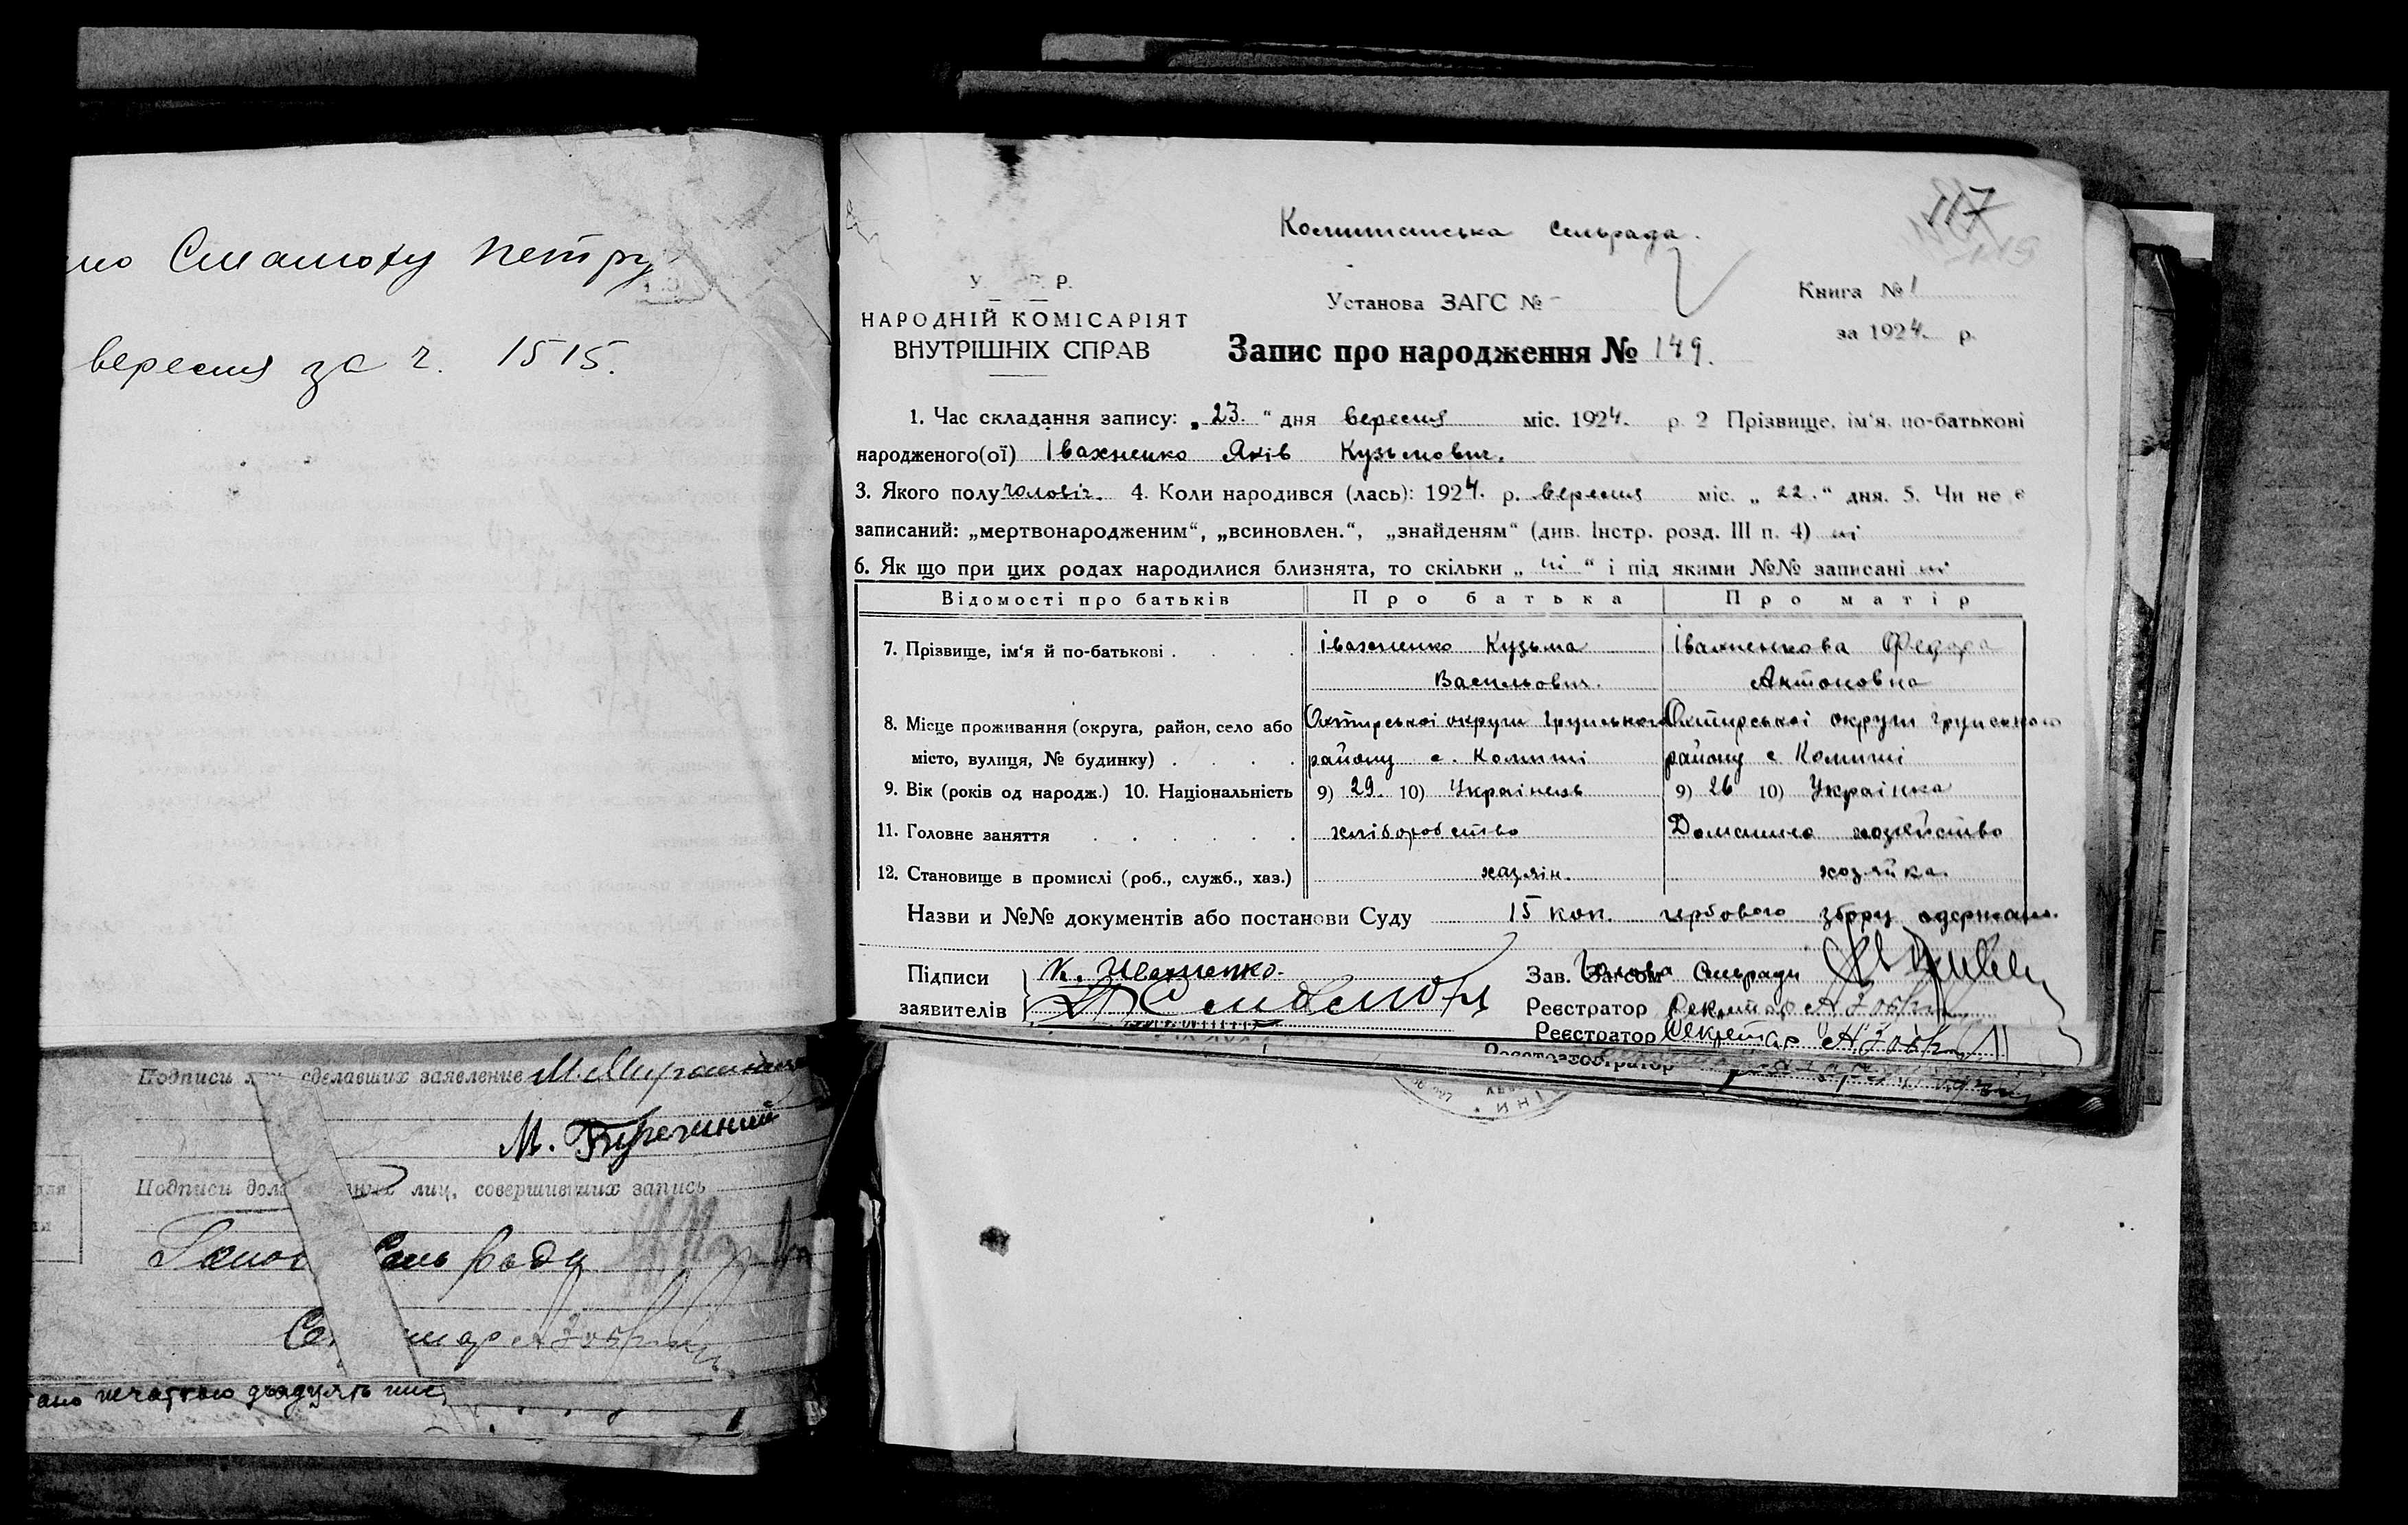 Сташоху Петру
вересня за ч. 1515.
Подписи сделавших заявление М. Мирошниче
М.
Подписи лиц, совершивших запись
Голов Сельради
печаткою
117
Комишанська сельрада.
У. Р.
НАРОДНІЙ КОМІСАРІЯТ
ВНУТРІШНІХ СПРАВ
Установа ЗАГС № -
Запис про народження № 149.
Книга № 1
за 1924. р.
1. Час складання запису: „ 23. “ дня вересня міс. 1924. р. 2 Прізвище, ім‘я, по-батькові
народженого(ої) Івахненко Яків Кузьмович.
3. Якого полу чоловіч. 4. Коли народився (лась): 1924. р. вересня міс. „ 22. “ дня. 5. Чи не є
записаний: „мертвонародженим“, „всиновлен.“, „знайденям“ (див. Інстр. розд. III п. 4) ні
6. Як що при цих родах народилися близнята, то скільки „ ні “ і під якими №№ записані ні
Відомості про батьків Про батька Про матір
7. Прізвище, ім‘я й по-батькові . . . . Івахненко Кузьма Івахненкова Федора
Васильович. Антоновна
8. Місце проживання (округа, район, село або Охтирської округи Грунського Охтирської округи Грунського
місто, вулиця, № будинку) . . . . району с. Комиші району с Комиші
9. Вік (років од народж.) 10. Національність 9) 29. 10) Українець 9) 26 10) Українка
11. Головне заняття . . . . . . хліборобство Домашнє хозяйство
12. Становище в промислі (роб., служб., хаз.) хазяін. хозяйка.
Назви и №№ документів або постанови Суду 15 коп. гербового збору одержано.
Підписи К. Ивахненко.
заявителів
Зав. Загсом Голова Сельради
Реєстратор Секретар
Реєстратор Секретар
Реєстратор